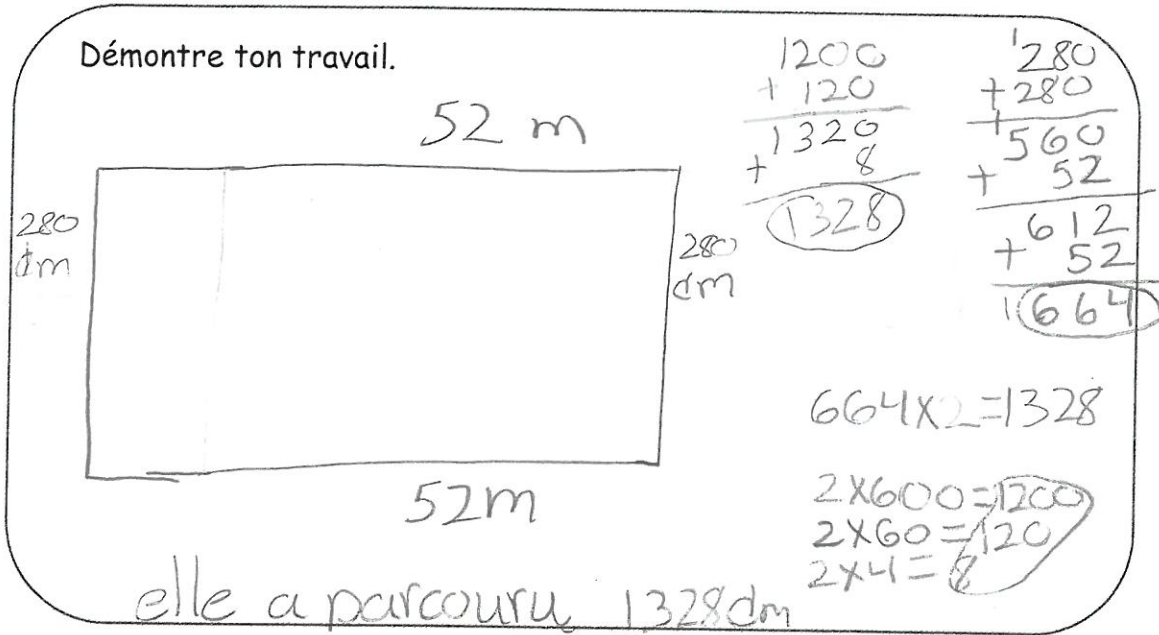 Démontre ton travail.
52 m
280
dm
280
dm
52m
1200
+ 120
1320
+ 8
1328
1
280
+ 280
1
560
+ 52
612
+ 52
664
664x2=1328
2x600=1200
2x60=120
2x4=8
elle a parcouru 1328dm